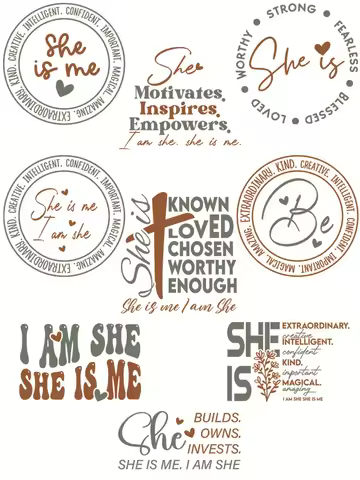 KIND. CREATIVE. INTELLIGENT. CONFIDENT. IMPORTANT. MAGICAL. AMAZING. EXTRAORDINARY.
She
is me
She
Motivates.
Inspires.
Empowers.
I am she. she is me.
WORTHY • STRONG • FEARLESS • BLESSED • LOVED •
She is
KIND. CREATIVE. INTELLIGENT. CONFIDENT. IMPORTANT. MAGICAL. AMAZING. EXTRAORDINARY.
She is me
I am she
She is
KNOWN
LOVED
CHOSEN
WORTHY
ENOUGH
She is me I am She
EXTRAORDINARY. KIND. CREATIVE. INTELLIGENT. CONFIDENT. IMPORTANT. MAGICAL. AMAZING.
Be
I AM SHE
SHE IS ME
SHE
IS
EXTRAORDINARY.
creative
INTELLIGENT.
confident
KIND.
important
MAGICAL.
amazing
I AM SHE SHE IS ME
She
BUILDS.
OWNS.
INVESTS.
SHE IS ME. I AM SHE